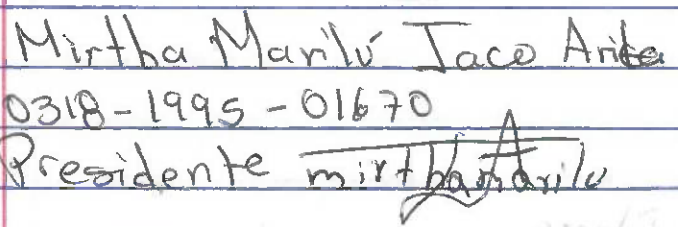 Mirtha Marilú Jaco Arita
0318-1995-01670
Presidente mirthamarilu